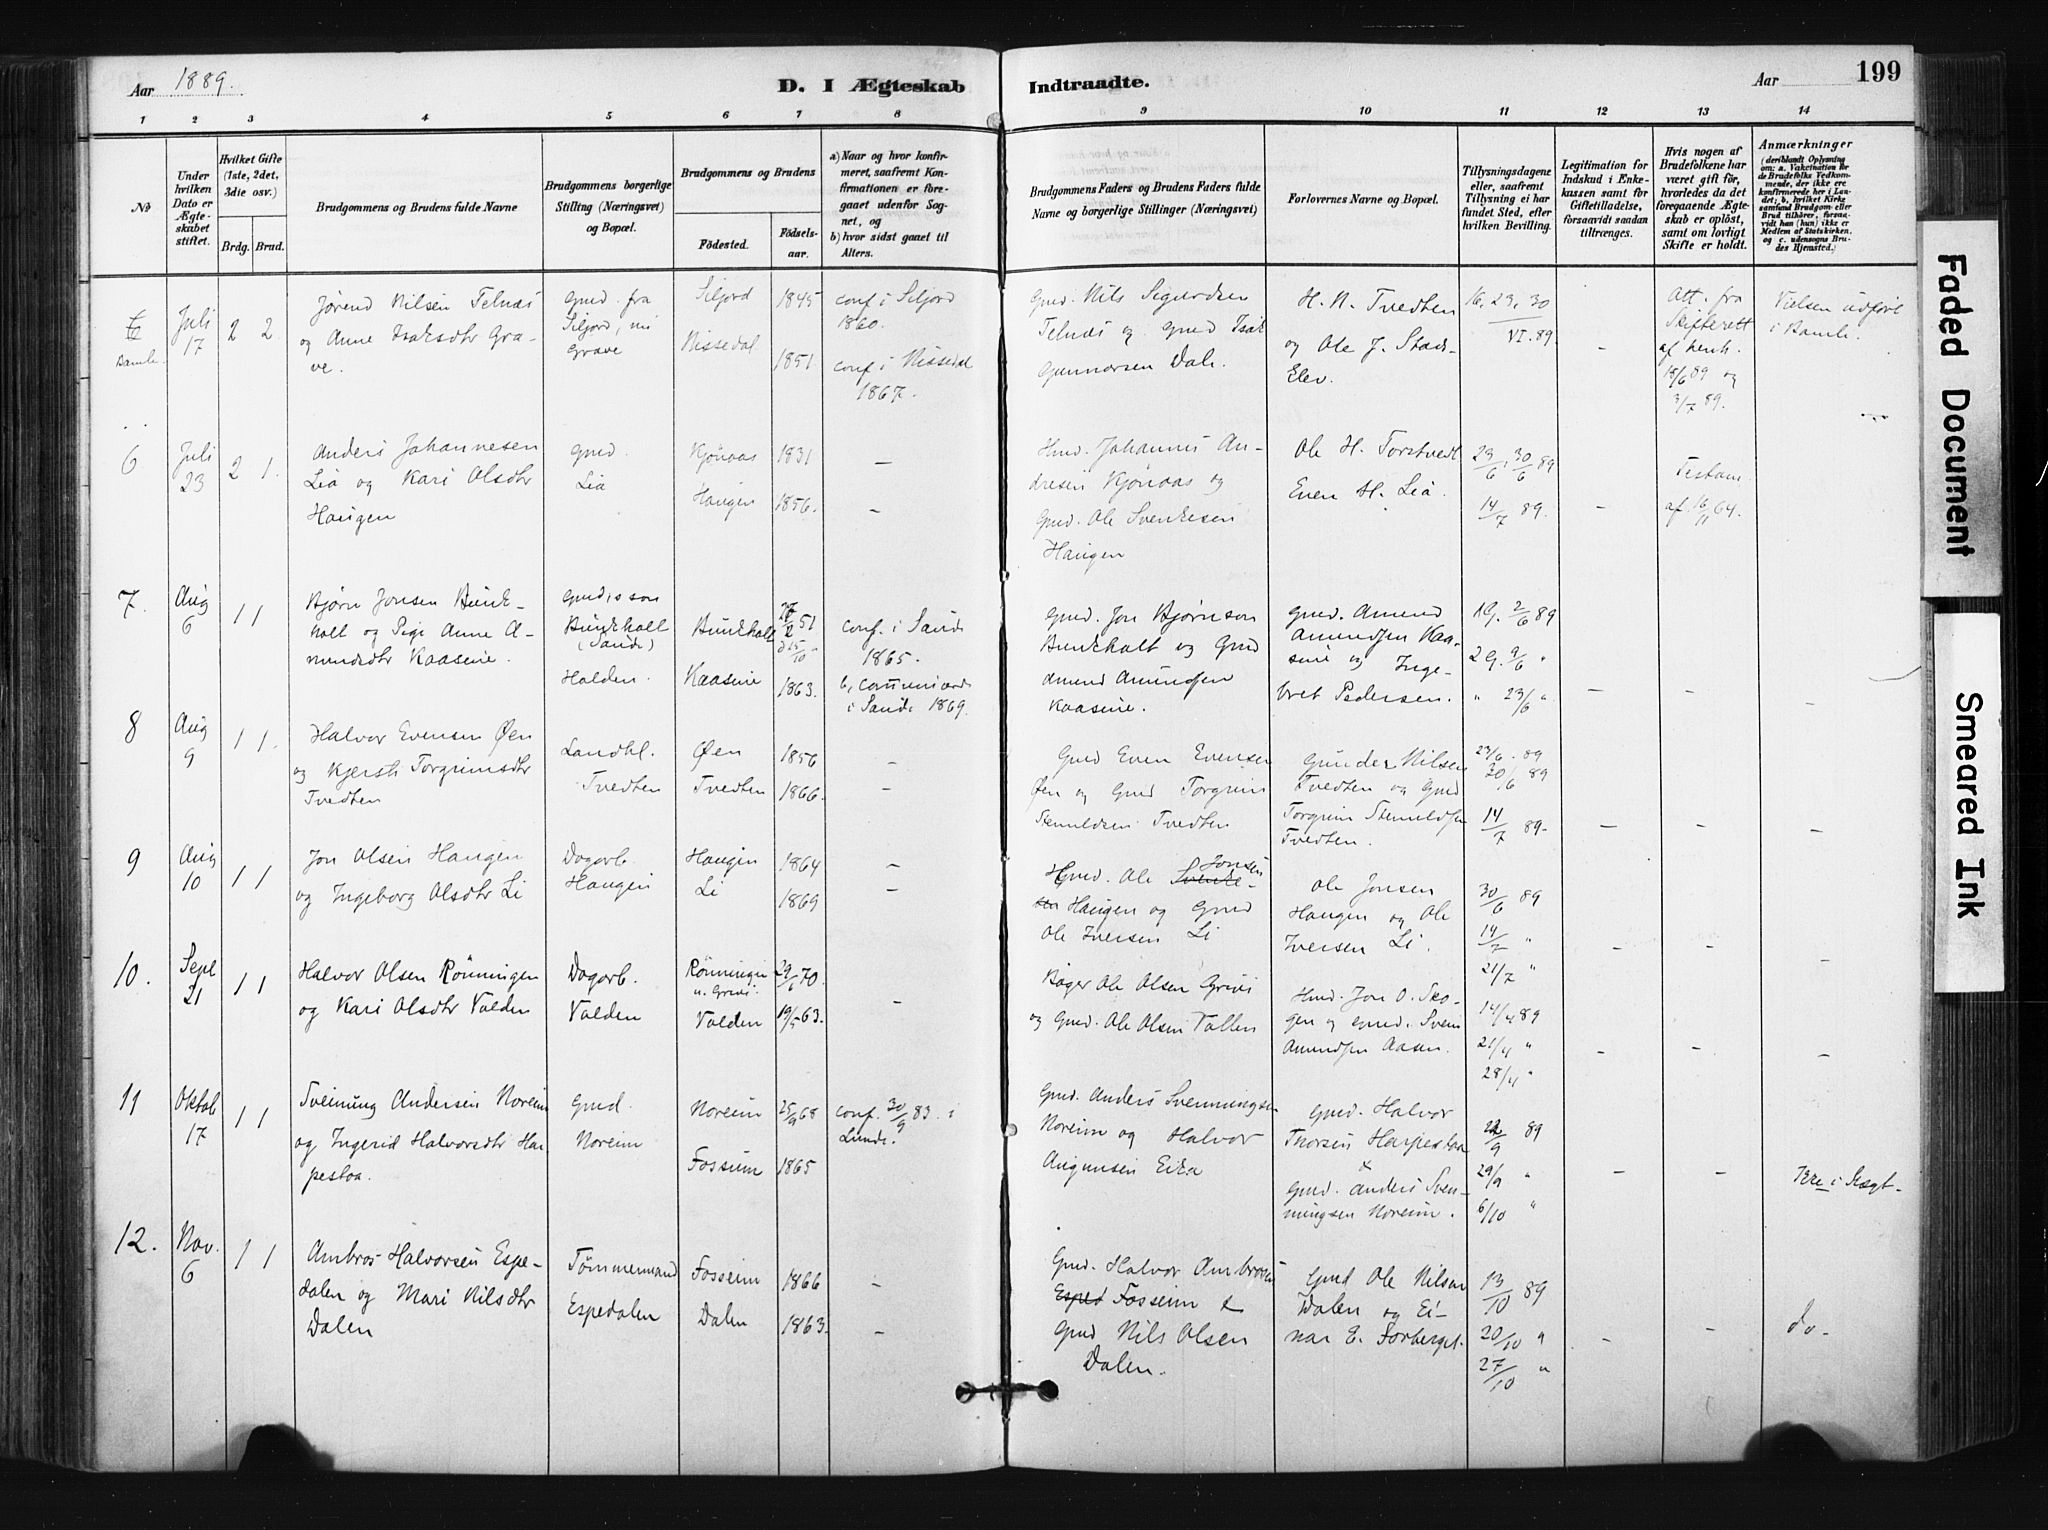 Aar 1889.
D. I Ægteskab Indtraadte.
Aar
199
1 2 3 4 5 6 7 8 9 10 11 12 13 14
No
Under hvilken Dato er Ægteskabet stiftet.
Hvilket Gifte (1ste, 2det, 3die osv.)
Brdg. Brud.
Brudgommens og Brudens fulde Navne
Brudgommens borgerlige Stilling (Næringsvei) og Bopæl.
Brudgommens og Brudens
Födested.
Födselsaar.
a) Naar og hvor konfirmeret, saafremt Konfirmationen er foregaaet udenfor Sognet, og
b) hvor sidst gaaet til Alters.
Brudgommens Faders og Brudens Faders fulde Navne og borgerlige Stillinger (Næringsvei)
Forlovernes Navne og Bopæl.
Tillysningsdagene eller, saafremt Tillysning ei har fundet Sted, efter hvilken Bevilling.
Legitimation for Indskud i Enkekassen samt for Giftetilladelse, forsaavidt saadan tiltrænges.
Hvis nogen af Brudefolkene har været gift för, hvorledes da det foregaaende Ægteskab er oplöst, samt om lovligt Skifte er holdt.
Anmærkninger
(deriblandt Oplysning om: a. Vakcination for de Brudefolks Vedkommende, der ikke ere konfirmerede her i Landet; b. hvilket Kirkesamfund Brudgom eller Brud tilhörer, forsaavidt han (hun) ikke er Medlem af Statskirken, og c. udensogns Brudes Hjemsted.)
Bamle
Juli 17
2 2
Jørend Nilsen Telnæs
og Anne Isaksdtr Grave.
Gmd. fra
Siljord, nu
Grave
Siljord
Nissedal
1845
1851
conf. i Siljord
1860.
conf. i Nissedal
1867.
Gmd. Nils Sigurdsen
Telnæs og Gmd Isak
Gunnarsen Dale.
H. N. Tvedten
og Ole J. Stads-
Elev.
16, 23, 30
VI. 89.
–
Att. fra
Skifterett
af henh.
18/6 89 og
3/7 89.
Vielsen udført
i Bamle.
6
Juli 23
2 1.
Anders Johannesen
Lia og Kari Olsdtr
Haugen
Gmd.
Lia
Kjönaas
Haugen
1831
1856.
–
–
Hmd. Johannes An-
dresen Kjönaas og
Gmd. Ole Svenkesen
Haugen
Ole H. Torstvedt
Even H. Lia.
23/6, 30/6 89
14/7 89.
–
Testam.
af 16/11 64.
7.
Aug 6
1 1
Bjørn Jonsen Bunk-
holt og Sigr. Anne A-
mundsdtr Kaasene.
Gmd.s son
Bunkholt
(Sande)
Holden.
Bunkholt
Kaasene
51
1863.
conf. i Sande
1865.
b, communicerede
i Sande 1869.
Gmd. Jon Bjørnson
Bunkholt og Gmd
Amund Amundsen
Kaasene.
Gmd. Amund
Amundsen Kaa-
sene og Inge-
bret Pedersen.
1 G. 2/6 89
2 G. 9/6 "
" 23/6 "
–
–
–
8
Aug 9
1 1.
Halvor Evensen Øen
og Kjersti Torgrimsdtr
Tvedten
Landhl.
Tvedten
Øen
Tvedten
1856
1866.
–
–
Gmd Even Evensen
Øen og Gmd Torgrim
Stenuldsen Tvedten
Gunder Nilsen
Tvedten og Gmd
Torgrim Stenuldsen
Tvedten.
23/6. 89
30/6 89
14/7 89-
–
–
–
9
Aug 10
1 1
Jon Olsen Haugen
og Ingeborg Olsdtr Li
Dagarb.
Haugen
Haugen
Li
1864
1869
–
–
Gmd. Ole Svenkesen Jonsen
Haugen og Gmd
Ole Iversen Li
Ole Jonsen
Haugen og Ole
Iversen Li.
30/6 89
14/7 "
21/7 "
–
–
–
10.
Sept 21
1 1
Halvor Olsen Rönningen
og Kari Olsdtr Valden
Dagarb.
Valden
Rönningen
u. Grivi.
Valden
29/6 70.
19/5 63.
–
Bager Ole Olsen Grivi
og Gmd. Ole Olsen Vallen
Hmd. Jon O. Sko-
gen og Gmd. Svein
Amundsen Aasen.
14/4 89
21/4 "
28/4 "
–
–
–
11
Oktob 17
1 1
Sveinung Andersen Noreim
og Ingerid Halvorsdtr Har-
pestoa.
Gmd.
Noreim
Noreim
Fosseim
25/9 68
1865
conf. 30/9 83. i
Lunde.
Gmd. Anders Svenningsen
Noreim og Halvor
Augunsen Eika
Gmd. Halvor
Thorsen Harpestoa
&
Gmd. Anders Sven-
ningsen Noreim.
22/9 89
29/9 "
6/10 "
–
–
3/4 i Slægt-
12.
Nov. 6
1 1
Ambros Halvorsen Espe-
dalen og Mari Nilsdtr
Dalen
Tømmermand
Espedalen
Fosseim
Dalen
1866
1863.
–
–
Gmd. Halvor Ambrosen
Esped Fosseim &
Gmd Nils Olsen
Dalen.
Gmd Ole Nilsen
Dalen og Ei-
nar E. Forberget.
13/10 89
20/10 "
27/10 "
–
–
do-
Faded Document
Smeared Ink